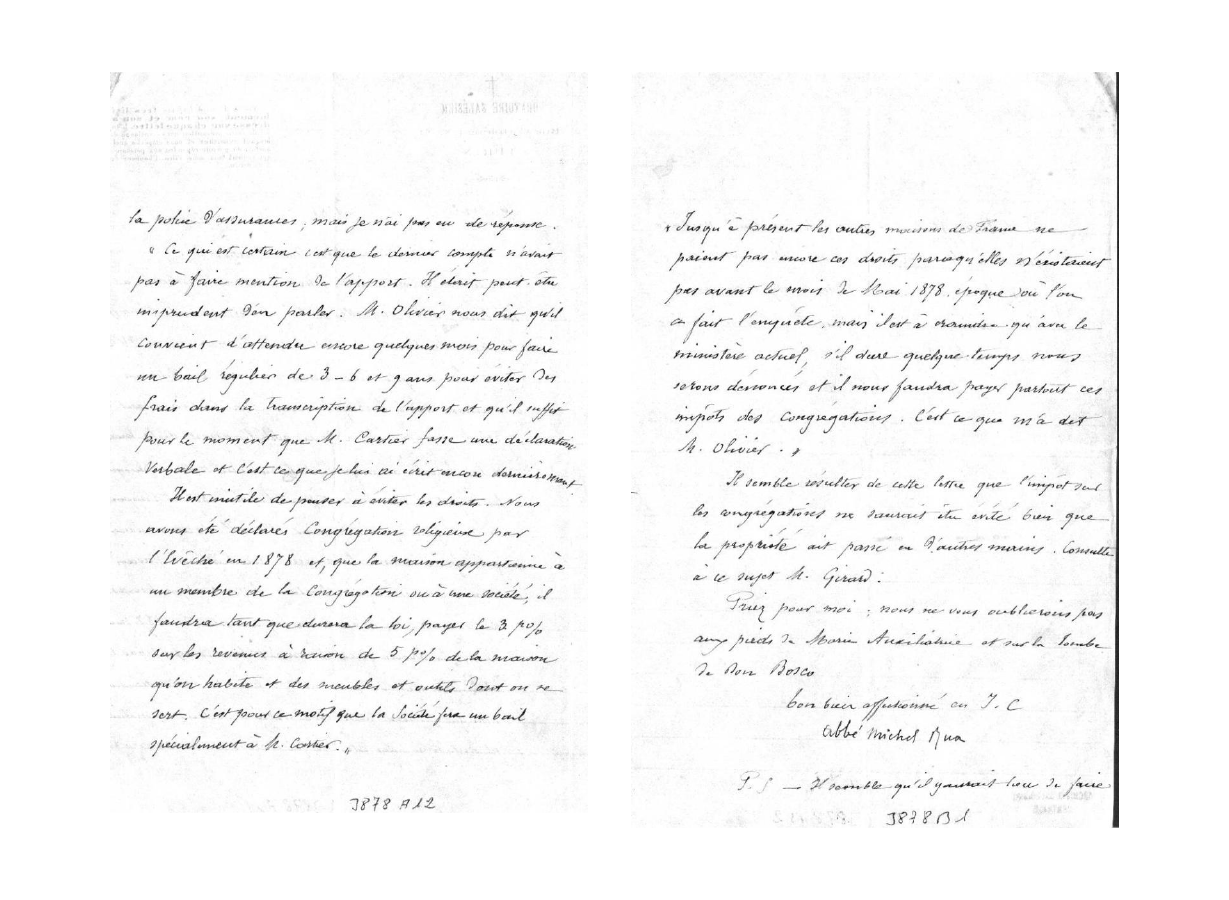 la police d'assurances, mais je n'ai pas eu de réponse.
« Ce qui est certain c'est que le dernier compte n'avait
pas à faire mention de l'apport. Il était peut-être
imprudent d'en parler. M. Olivier nous dit qu'il
convient d'attendre encore quelques mois pour faire
un bail régulier de 3 – 6 et 9 ans pour éviter des
frais dans la transcription de l'apport et qu'il suffit
pour le moment que M. Cartier fasse une déclaration
verbale et c'est ce que je lui ai écrit encore dernièrement.
Il est inutile de penser à éviter les droits. Nous
avons été déclarés Congrégation religieuse par
l'Evêché en 1878 et, que la maison appartienne à
un membre de la Congrégation ou à une société, il
faudra tant que durera la loi, payer le 3 p%
sur les revenus à raison de 5 p% de la maison
qu'on habite et des meubles et outils dont on se
sert. C'est pour ce motif que la Société fera un bail
spécialement à M. Cartier. »
J878 A12
« Jusqu'à présent les autres maisons de France ne
paient pas encore ces droits parcequ'elles n'existaient
pas avant le mois de Mai 1878, époque où l'on
a fait l'enquête, mais il est à craindre qu'avec le
ministère actuel, s'il dure quelque temps nous
serons dénoncés et il nous faudra payer partout ces
impôts des Congrégations. C'est ce que m'a dit
M. Olivier. »
Il semble résulter de cette lettre que l'impôt sur
les congrégations ne saurait être évité bien que
la propriété ait passé en d'autres mains. Consulte
à ce sujet M. Girard.
Priez pour moi ; nous ne vous oublierons pas
aux pieds de Marie Auxiliatrice et sur la tombe
de Don Bosco
bien affectionné en J. C
Abbé Michel Rua
P. S — Il semble qu'il y aurait lieu de faire
J878 B1
ORATOIRE SALÉSIEN